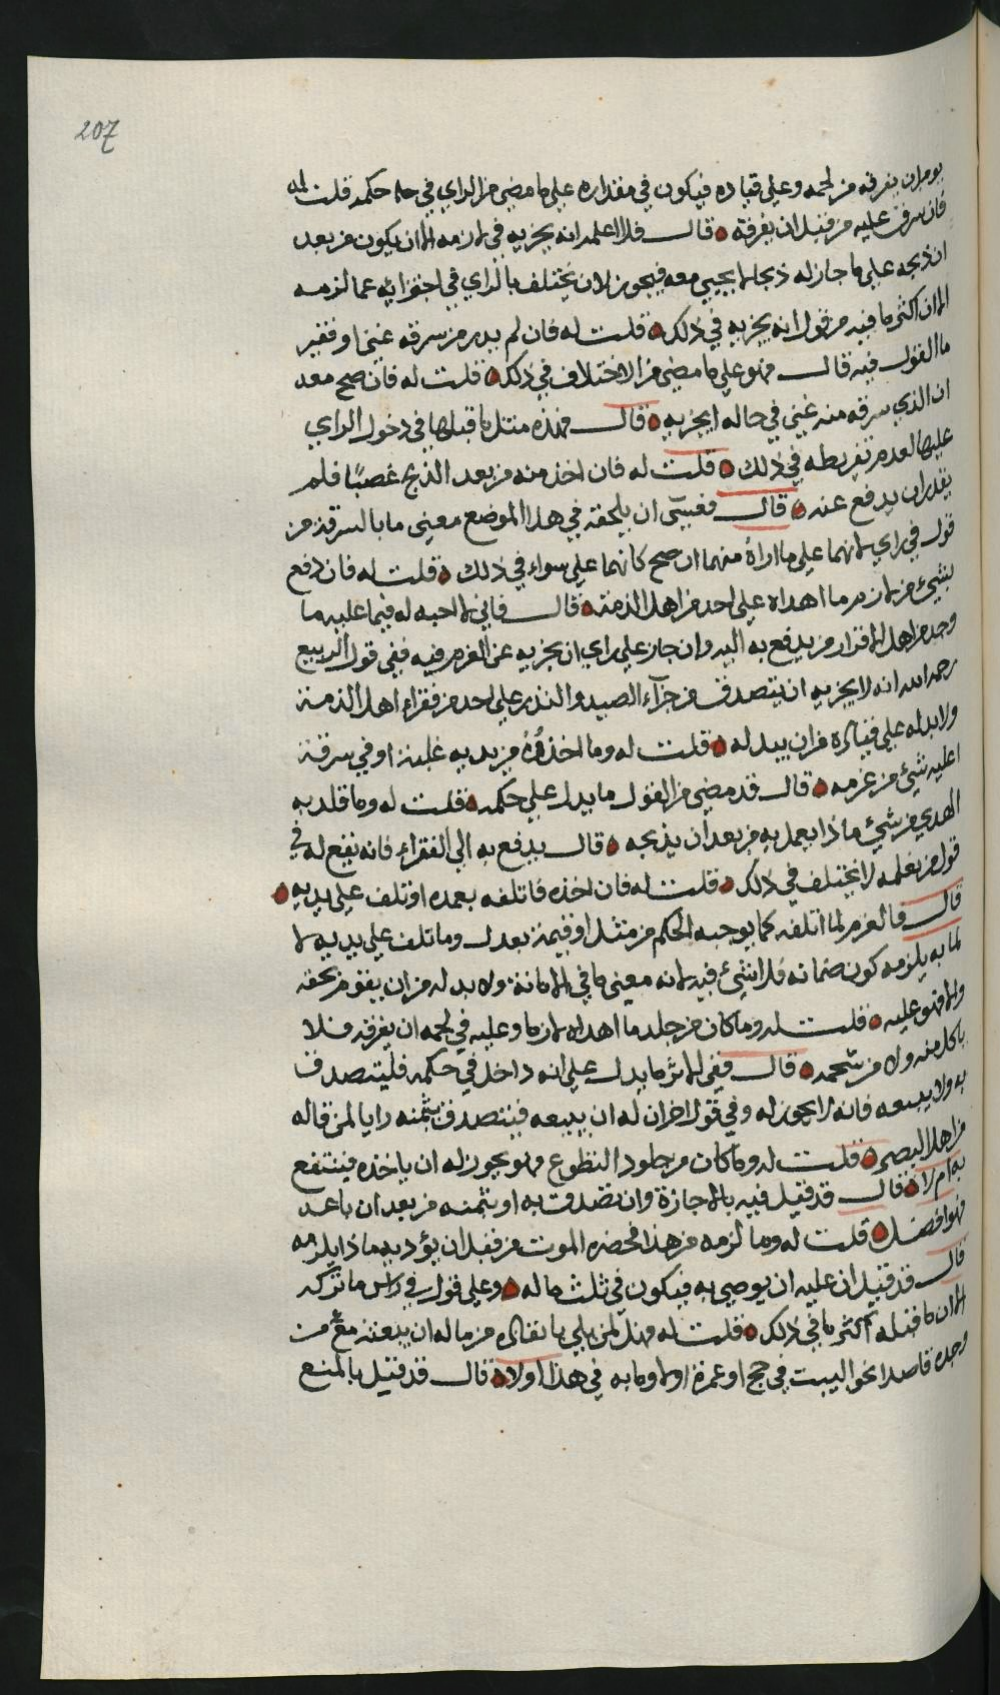 207
يومر ان يفرقه من لحمه وعلى قياده فيكون في مقداره على ما مضى من الراي في حكمه قلت له
فان سرق عليه من قبل ان يفرقه قال فلا اعلم انه يجزيه في لازمه الا ان يكون من بعد
ان ذبحه على ما جاز له ذبحا يجيي معه فيجوز لان يختلف بالراي في اجتزايه عما لزمه
الا ان اكثر ما فيه من قول انه يجزيه في ذلك قلت له فان لم يدر من سرقه غني او فقير
ما القول فيه قال فهو على ما مضى من الاختلاف في ذلك قلت له فان صح معه
ان الذي سرقه منه غني في حاله ايجزيه قال فهذه مثل ما قبلها في دخول الراي
عليها لعدم تفريطه في ذلك قلت له فان اخذ منه من بعد الذبح غصبا فلم
يقدر ان يدفع عنه قال فعسى ان يلحقه في هذا الموضع معنى ما بالسرقة من
قول في راي لانهما على ما اراه منهما ان صح كانهما على سواء في ذلك قلت له فان دفع
بشيء من لازم ما اهداه على احد من اهل الذمة قال فاني لا احبه له فيما عليه ما
وجد من اهل الاقرار من يدفع به اليه وان جاز على راي ان يجزيه عن الغرم فيه ففي قول الربيع
رحمه الله انه لا يجزيه ان يتصدق من جزآء الصيد والنذر على احد من فقراء اهل الذمة
ولا بد له على قياده من ان يبدله قلت له وما اخذ من يديه غلبة او في سرقة
اعليه شيء من غرمه قال قد مضى من القول ما يدل على حكمه قلت له وما قلد به
الهدي من شيء ماذا يعمل به من بعد ان يذبحه قال يدفع به الى الفقراء فانه يقع له في
قول من يعلمه لا يختلف في ذلك قلت له فان اخذه فاتلفه بعمده او تلف على يديه
قال فالغرم لما اتلفه كما يوجبه الحكم من مثل او قيمة بعدل وما تلف على يديه لا
لما به يلزمه كون ضمانه فلا شيء فيه لانه معنى ما في الامانة ولا بد له من ان يقوم بحقه
والا فهو عليه قلت له وما كان من جلد ما اهداه لازما وعليه في لحمه ان يفرقه فلا
ياكل منه ولا من شحمه قال ففي الاثر ما يدل على انه داخل في حكمه فليتصدق
به ولا يبيعه فانه لا يجوز له وفي قول اخر ان له ان يبيعه فيتصدق بثمنه رايا لمن قاله
من اهل البصر قلت له وما كان من جلود التطوع فهو يجوز له ان ياخذه فينتفع
به ام لا قال قد قيل فيه بالاجازة وان تصدق به او بثمنه من بعد ان باعه
فهو افضل قلت له وما لزمه من هذا فحضره الموت من قبل ان يؤديه ماذا يلزمه
قال قد قيل ان عليه ان يوصي به فيكون في ثلث ماله وعلى قول في راس ما تركه
الا ان ما قبله اكثر ما في ذلك قلت له فهل لمن بلي بانقاذه من ماله ان يبعثه مع من
وجده قاصدا نحو البيت في حج او عمرة اولا وما به في هذا اولا قال قد قيل بالمنع